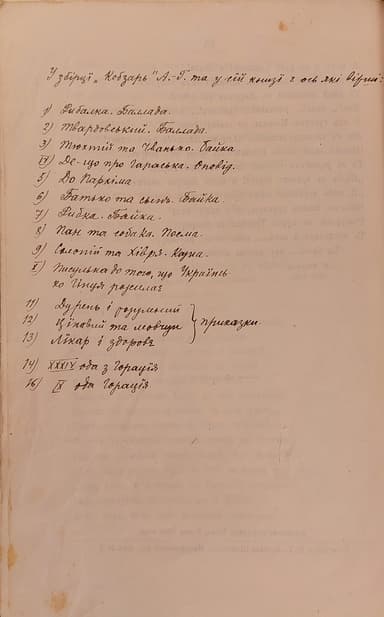 У збірці „Кобзарь" А.-Г. та у сій книзі є ось які вірші:
1) Рибалка. Баллада.
2) Твардовський. Баллада.
3) Тюхтій та Чванько. Байка.
IV) Де-що про Гараська. Оповід.
5) До Пархіма.
6) Батько та сын. Байка.
7) Рибка. Байка.
8) Пан та собака. Поема.
9) Солопій та Хівря. Казка.
X) Писулька до того, що Українсь
ко Иньця розсилає
11) Дурень і розумний
12) Цікавий та мовчун } приказки.
13) Лікар і здоровʼє
14) XXXIV ода з Горація
16) IX ода Горація